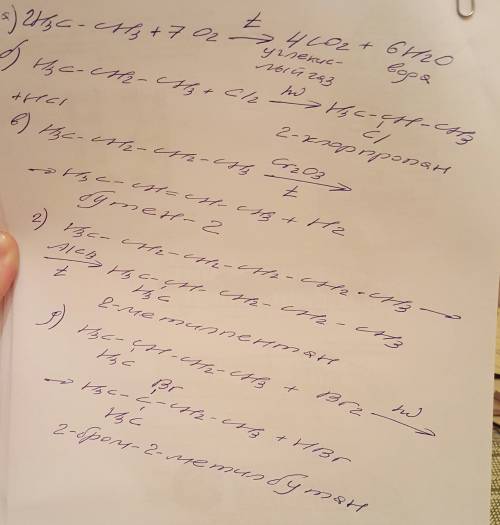 а) 2H3C – CH3 + 7 O2 t→ 4CO2 + 6H2O
углекислый газ вода
б) H3C – CH2 – CH3 + Cl2 hν→ H3C – CH – CH3
Cl
+ HCl 2-хлорпропан
в) H3C – CH2 – CH2 – CH3 Cr2O3 t→
→ H3C – CH = CH – CH3 + H2
бутен – 2
г) H3C – CH2 – CH2 – CH2 – CH2 – CH3 →
AlCl3 t→ H3C – CH – CH2 – CH2 – CH3
H3C
2-метилпентан
д) H3C – CH – CH2 – CH3 + Br2 hν→
H3C
Br
→ H3C – C – CH2 – CH3 + HBr
H3C
2-бром-2-метилбутан